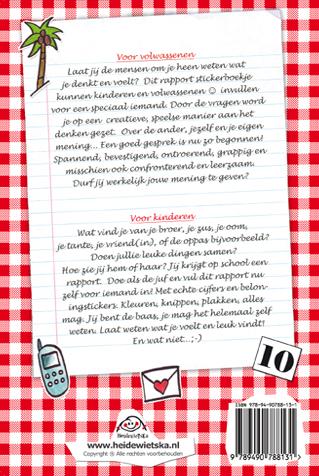 Voor volwassenen
Laat jij de mensen om je heen weten wat
je denkt en voelt? Dit rapport stickerboekje
kunnen kinderen en volwassenen ☺ invullen
voor een speciaal iemand. Door de vragen word
je op een creatieve, speelse manier aan het
denken gezet. Over de ander, jezelf en je eigen
mening... Een goed gesprek is nu zo begonnen!
Spannend, bevestigend, ontroerend, grappig en
misschien ook confronterend en leerzaam.
Durf jij werkelijk jouw mening te geven?
Voor kinderen
Wat vind je van je broer, je zus, je oom,
je tante, je vriend(in), of de oppas bijvoorbeeld?
Doen jullie leuke dingen samen?
Hoe zie jij hem of haar? Jij krijgt op school een
rapport. Doe als de juf en vul dit rapport nu
zelf voor iemand in! Met echte cijfers en belon-
ingstickers. Kleuren, knippen, plakken, alles
mag. Jij bent de baas, je mag het helemaal zelf
weten. Laat weten wat je voelt en leuk vindt!
En wat niet...;-)
10
Heidewietska
www.heidewietska.nl
Copyright @ Alle rechten voorbehouden
ISBN 978-94-90788-13-1
9 789490 788131 >